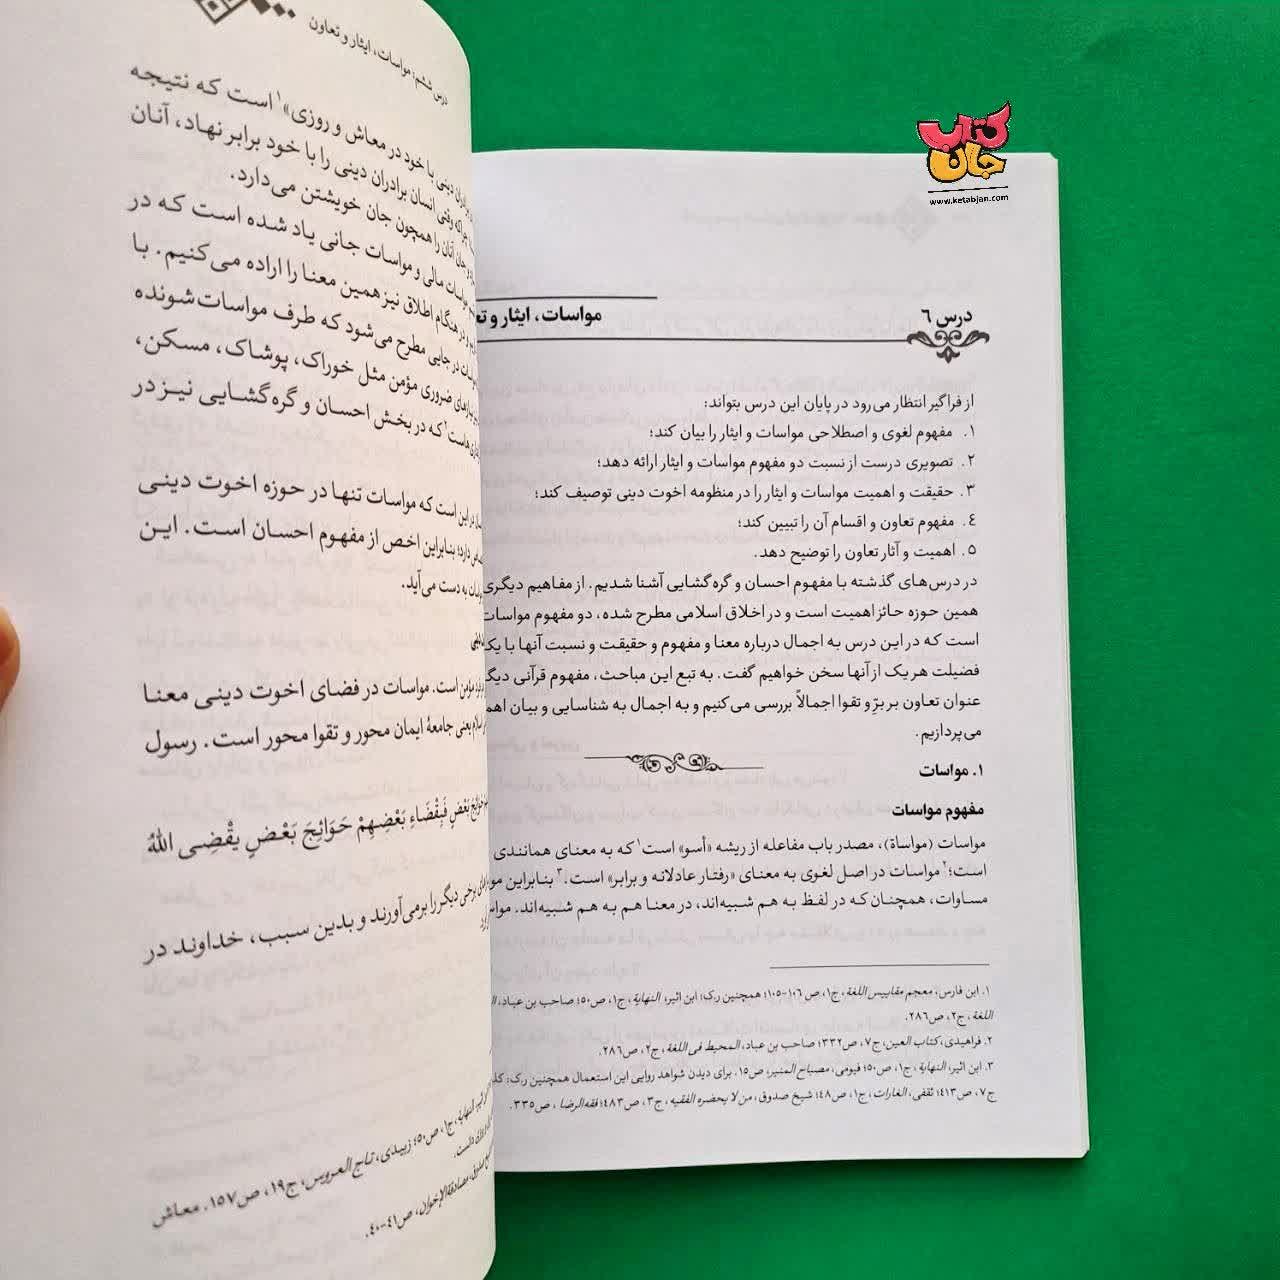 کتاب
جان
www.ketabjan.com
درس ٦
مواسات، ایثار و
از فراگیر انتظار می‌رود در پایان این درس بتواند:
۱. مفهوم لغوی و اصطلاحی مواسات و ایثار را بیان کند؛
۲. تصویری درست از نسبت دو مفهوم مواسات و ایثار ارائه دهد؛
۳. حقیقت و اهمیت مواسات و ایثار را در منظومه اخوت دینی توصیف کند؛
٤. مفهوم تعاون و اقسام آن را تبیین کند؛
۵. اهمیت و آثار تعاون را توضیح دهد.
در درس‌های گذشته با مفهوم احسان و گره‌گشایی آشنا شدیم. از مفاهیم دیگری
همین حوزه حائز اهمیت است و در اخلاق اسلامی مطرح شده، دو مفهوم مواسات
است که در این درس به اجمال درباره معنا و مفهوم و حقیقت و نسبت آنها با یک
فضیلت هر یک از آنها سخن خواهیم گفت. به تبع این مباحث، مفهوم قرآنی
عنوان تعاون بر برّ و تقوا اجمالاً بررسی می‌کنیم و به اجمال به شناسایی و بیان
می‌پردازیم.
۱. مواسات
مفهوم مواسات
مواسات (مواساة)، مصدر باب مفاعله از ریشه «أسو» است۱ که به معنای همانندی
است؛۲ مواسات در اصل لغوی به معنای «رفتار عادلانه و برابر» است.۳ بنابراین
مساوات، همچنان که در لفظ به هم شبیه‌اند، در معنا هم به هم شبیه‌اند.
۱. ابن فارس، معجم مقاییس اللغة، ج۱، ص ۱۰۶-۱۰۵؛ همچنین رک: ابن اثیر، النهایة، ج۱، ص۵۰؛ صاحب بن عباد،
اللغة، ج۲، ص۲۸۶.
۲. فراهیدی، کتاب العین، ج۷، ص۳۳۲؛ صاحب بن عباد، المحیط فی اللغة، ج۲، ص۲۸۶.
۳. ابن اثیر، النهایة، ج۱، ص۵۰؛ فیومی، مصباح المنیر، ص۱۵. برای دیدن شواهد روایی این استعمال همچنین رک:
ج۷، ص۴۱۳؛ ثقفی، الغارات، ج۱، ص۴۸؛ شیخ صدوق، من لا یحضره الفقیه، ج۳، ص۴۸۳؛ فقه الرضا، ص۳۳۵.
درس ششم: مواسات، ایثار و تعاون
دینی با خود در معاش و روزی»۱ است که نتیجه
چراکه وقتی انسان برادران دینی را با خود برابر نهاد، آنان
و جان آنان را همچون جان خویشتن می‌دارد.
مواسات مالی و مواسات جانی یاد شده است که در
و در هنگام اطلاق نیز همین معنا را اراده می‌کنیم. با
در جایی مطرح می‌شود که طرف مواسات‌شونده
نیازهای ضروری مؤمن مثل خوراک، پوشاک، مسکن،
که در بخش احسان و گره‌گشایی نیز در
در این است که مواسات تنها در حوزه اخوت دینی
دارد؛ بنابراین اخص از مفهوم احسان است. این
به دست می‌آید.
مؤمن است. مواسات در فضای اخوت دینی معنا
یعنی جامعهٔ ایمان محور و تقوا محور است. رسول
بَعْضٍ فَبِقَضَاءِ بَعْضِهِمْ حَوَائِجَ بَعْضٍ یَقْضِی اللهُ
برخی دیگر را برمی‌آورند و بدین سبب، خداوند در
النهایة، ج۱، ص۵۰؛ زبیدی، تاج العروس، ج۱۹، ص۱۵۷. معاش
دانست.
صدوق، مصادقة الإخوان، ص۴۱-۴۰.